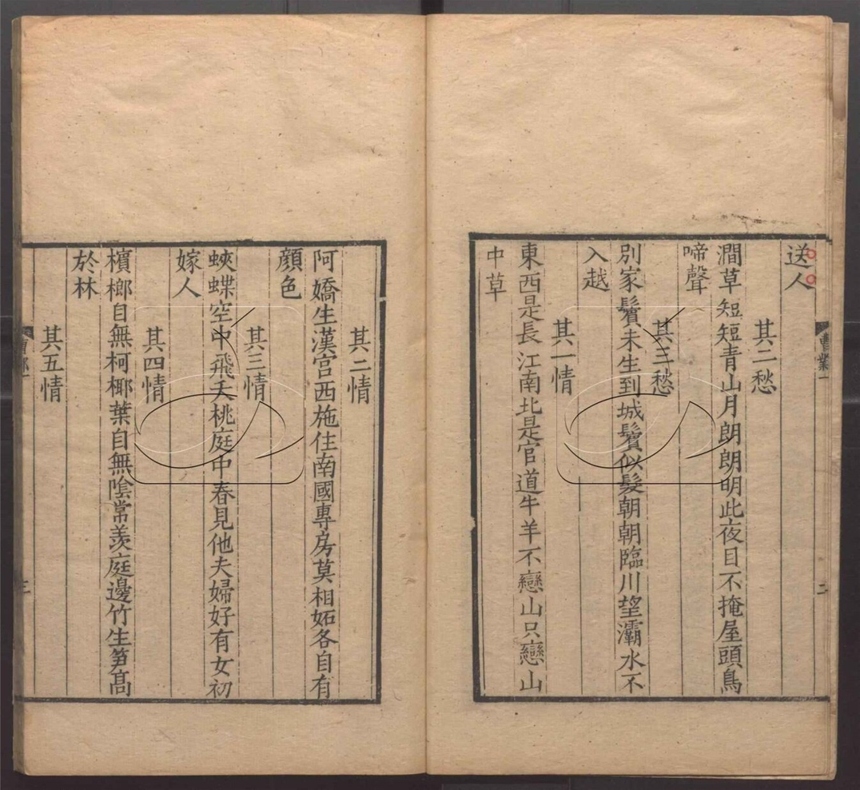 送人
其二愁
澗草短短青山月朗朗明此夜目不掩屋頭鳥
啼聲
其三愁
別家鬢未生到城鬢似髮朝朝臨川望灞水不
入越
其一情
東西是長江南北是官道牛羊不戀山只戀山
中草
其二情
阿嬌生漢宮西施住南國專房莫相妬各自有
顏色
其三情
蛺蝶空中飛夭桃庭中春見他夫婦好有女初
嫁人
其四情
檳榔自無柯椰葉自無陰常羨庭邊竹生笋高
於林
其五情
三